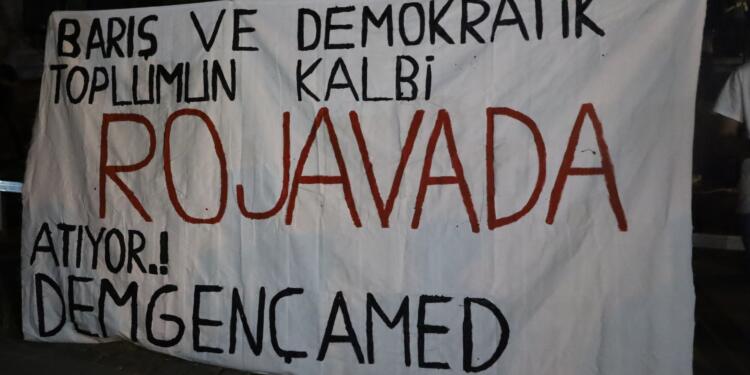 BARIŞ VE DEMOKRATİK
TOPLUMUN KALBİ
ROJAVADA
ATIYOR.!
DEMGENÇAMED